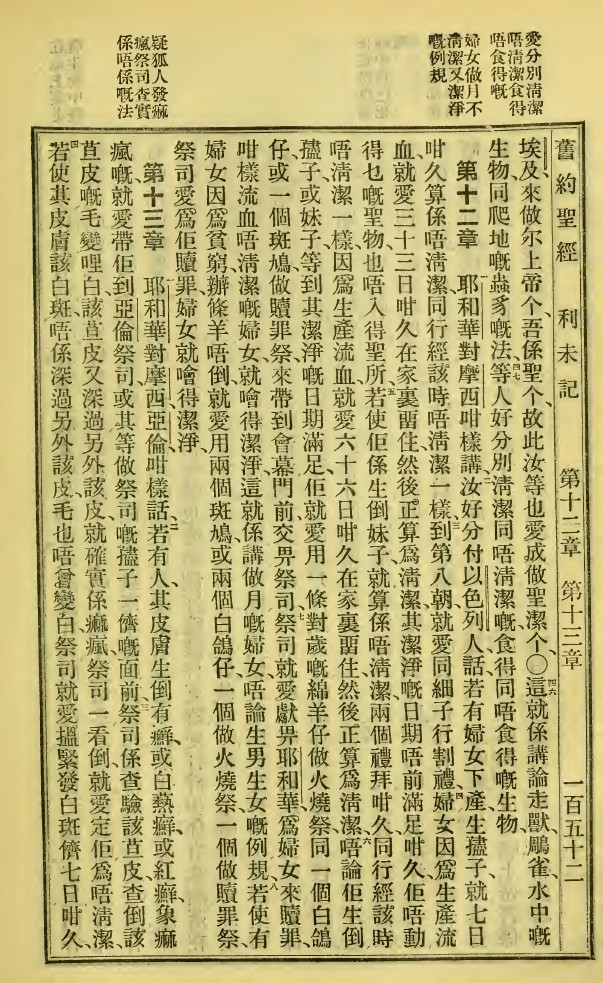 愛分別清潔
唔清潔食得
唔食得嘅
婦女做月不
清潔又潔淨
嘅例規
疑狐人發痲
瘋祭司查實
係唔係嘅法
舊約聖經 利未記 第十二章 第十三章 一百五十二
埃及、來做尔上帝个、吾係聖个、故此汝等也愛成做聖潔个、〇四六這就係講論走獸、鵰雀、水中嘅
生物、同爬地嘅蟲豸嘅法、四七等人好分別清潔同唔清潔嘅、食得同唔食得嘅生物、
第十二章 耶和華對摩西咁樣講、二汝好分付以色列人話、若有婦女下產生孻子、就七日
咁久算係唔清潔、同行經該時唔清潔一樣、三到第八朝、就愛同細子行割禮、四婦女因爲生產流
血、就愛三十三日咁久在家裏畱住、然後正算爲清潔、其潔淨嘅日期唔前滿足咁久、佢唔動
得乜嘅聖物、也唔入得聖所、五若使佢係生倒妹子、就算係唔清潔兩個禮拜咁久、同行經該時
唔清潔一樣、因爲生產流血、就愛六十六日咁久在家裏畱住、然後正算爲清潔、六唔論佢生倒
孻子或妹子、等到其潔淨嘅日期滿足、佢就愛用一條對歲嘅綿羊仔做火燒祭、同一個白鴿
仔、或一個斑鳩做贖罪祭、來帶到會幕門前交畀祭司、七祭司就愛獻畀耶和華、爲婦女來贖罪、
咁樣流血唔清潔嘅婦女、就噲得潔淨、這就係講做月嘅婦女、唔論生男生女嘅例規、八若使有
婦女因爲貧窮、辦條羊唔倒、就愛用兩個斑鳩、或兩個白鴿仔、一個做火燒祭、一個做贖罪祭、
祭司愛爲佢贖罪、婦女就噲得潔淨、
第十三章 耶和華對摩西亞倫咁樣話、二若有人、其皮膚生倒有癬、或白熱癬、或紅癬、象痲
瘋嘅、就愛帶佢到亞倫祭司、或其等做祭司嘅孻子一儕嘅面前、三祭司係查驗該苴皮、查倒該
苴皮嘅毛變哩白、該苴皮又深過另外該皮、就確實係痲瘋、祭司一看倒、就愛定佢爲唔清潔、
四若使其皮膚該白斑、唔係深過另外該皮、毛也唔曾變白、祭司就愛搵緊發白斑儕七日咁久、